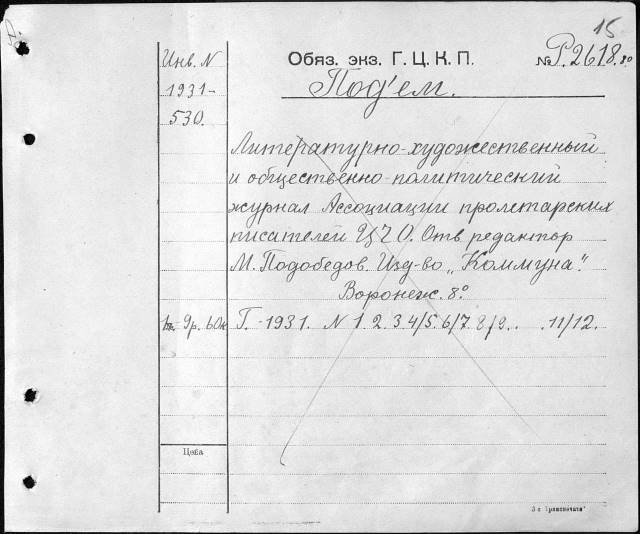 15
Инв. N
1931-
530.
Обяз. экз. Г. Ц. К. П.
№ Р.2618.80
Под'ем.
Литературно-художественный
и общественно-политический
журнал Ассоциации пролетарских
писателей ЦЧО. Отв редактор
М. Подобедов. Изд-во „Коммуна".
Воронеж. 8°
9р. 60к
Г. -1931. N 1. 2. 3. 4/5. 6/7. 8/9. . 11/12.
Цена